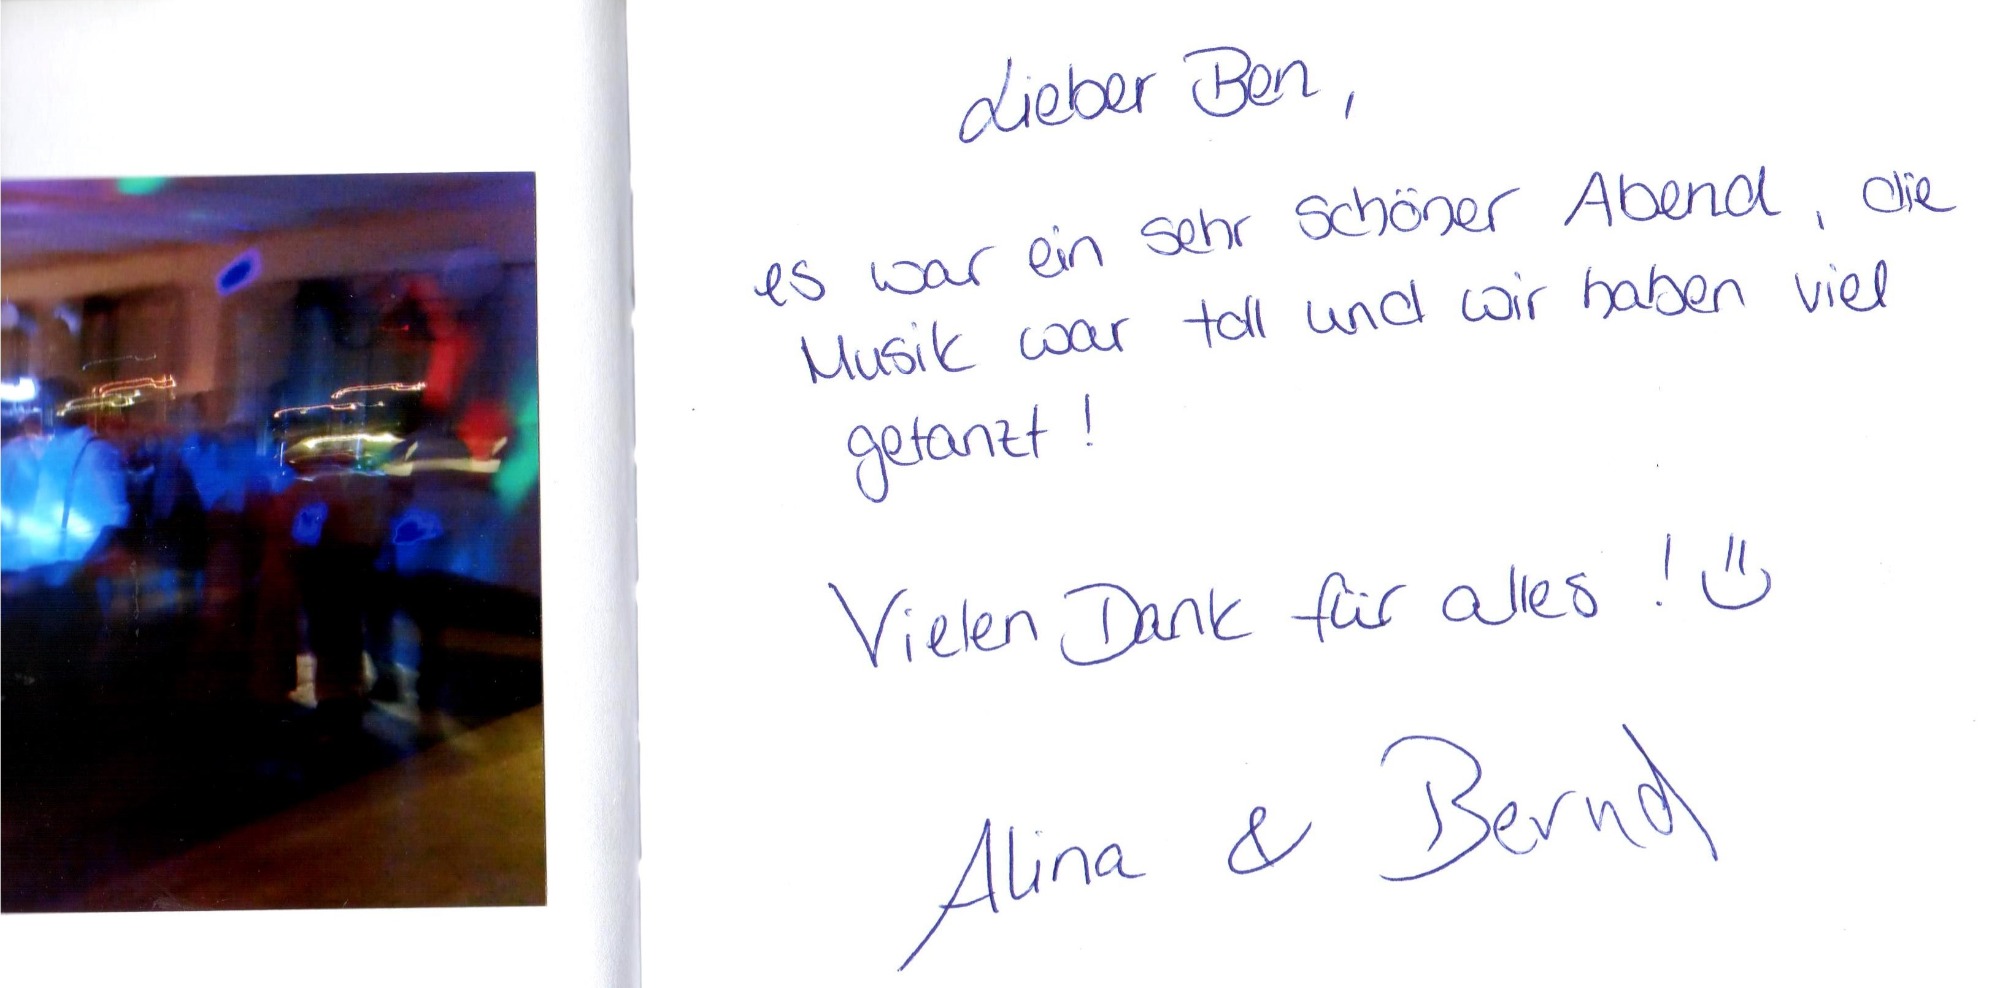 Lieber Ben,
es war ein sehr schöner Abend, die
Musik war toll und wir haben viel
getanzt!
Vielen Dank für alles! :)
Alina & Bernd